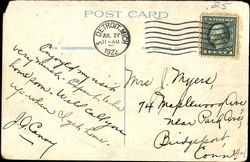 25
POST CARD
DETROIT, MICH.
JUL 27
11-AM
1922
Enjoyed my visit
very much. Expect to be
home soon. Will call you
up when I get home.
J. G.
Mrs J. Myers,
74 Maplewood Ave
near Park Ave,
Bridgeport
Conn